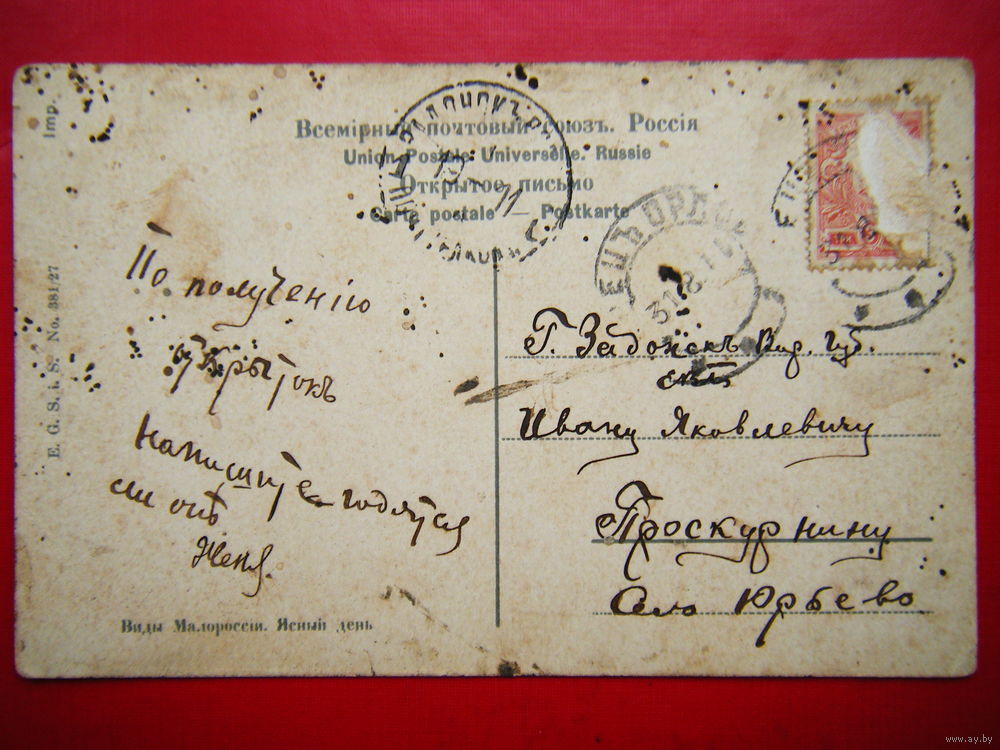 Всемірный почтовый союзъ. Россія
Union Postale Universelle. Russie
Открытое письмо
Carte postale — Postkarte
Imp.
E. G. S. i. S. No. 381/27
По получению
открытокъ
Напишите годятся
ли онѣ
Женя.
Виды Малороссіи. Ясный день
Г. Задонскъ Вор. губ.
Ивану Яковлевичу
Проскурнину
Село Юрьево
31 8 1
11
www.ay.by